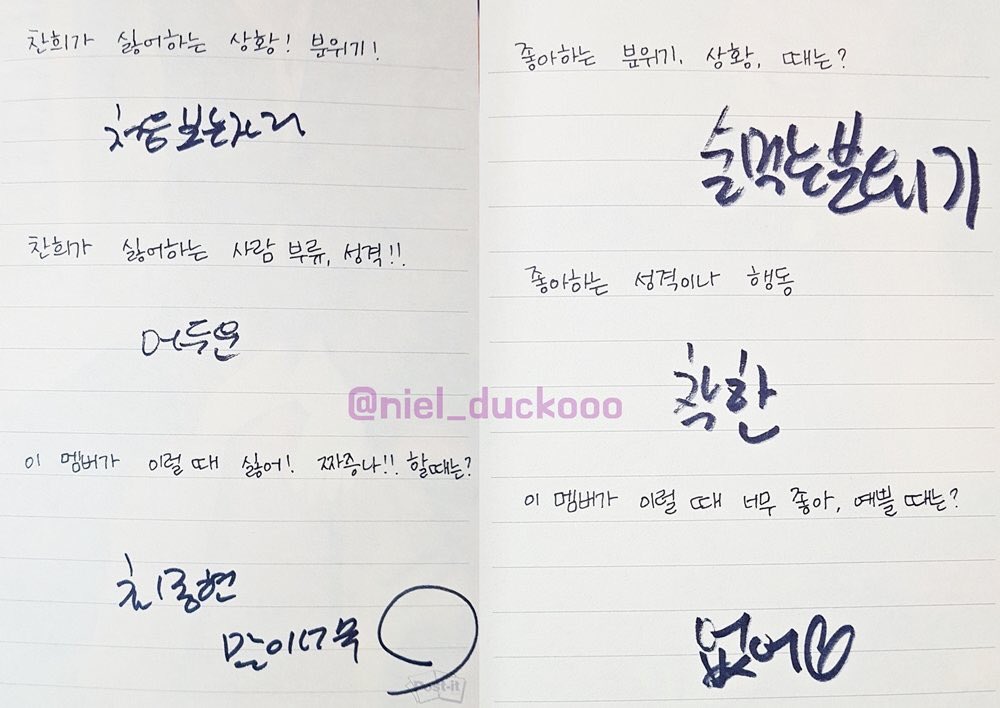 찬희가 싫어하는 상황! 분위기!
처음보는자리
찬희가 싫어하는 사람 부류, 성격!!
어두운
이 멤버가 이럴 때 싫어! 짜증나!! 할때는?
최종현
말이너무
post-it
좋아하는 분위기, 상황, 때는?
술먹는분위기
좋아하는 성격이나 행동
착한
이 멤버가 이럴 때 너무 좋아, 예쁠 때는?
없어
@niel_duckooo